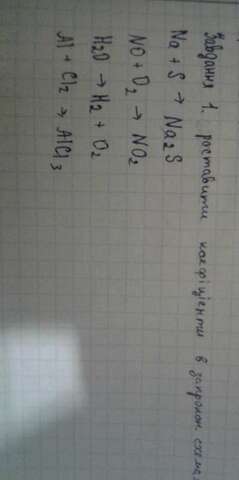 Завдання 1. розставити коефіцієнти в запропон. схемах
Na + S → Na₂S
NO + O₂ → NO₂
H₂O → H₂ + O₂
Al + Cl₂ → AlCl₃